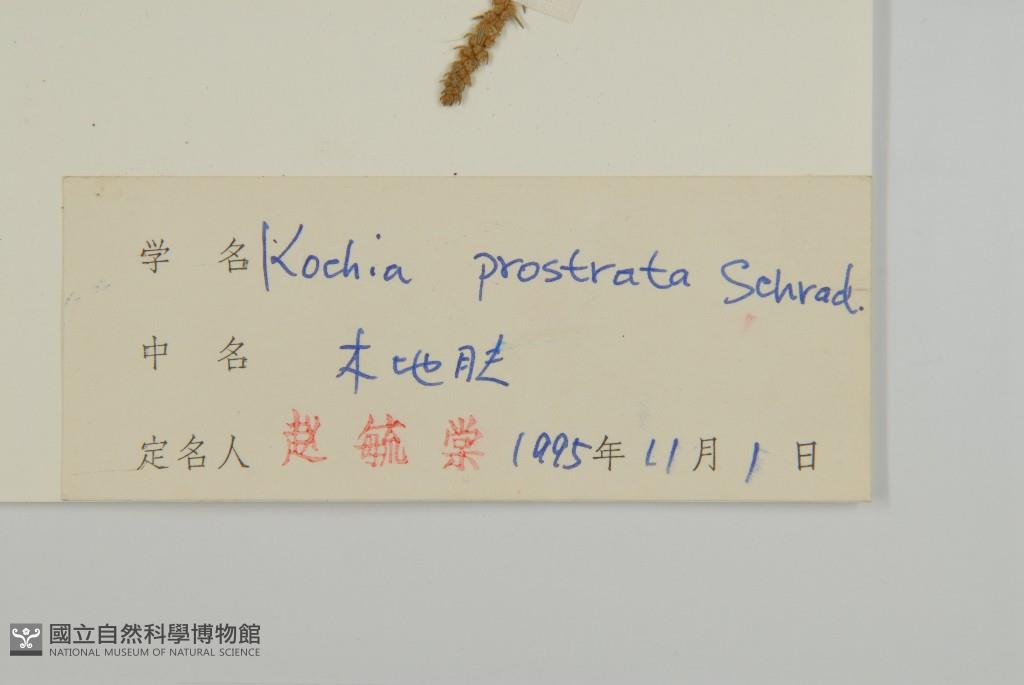 学 名 Kochia prostrata Schrad.
中 名 木地肤
定名人 赵毓棠 1995年 11月 1日
國立自然科學博物館
NATIONAL MUSEUM OF NATURAL SCIENCE